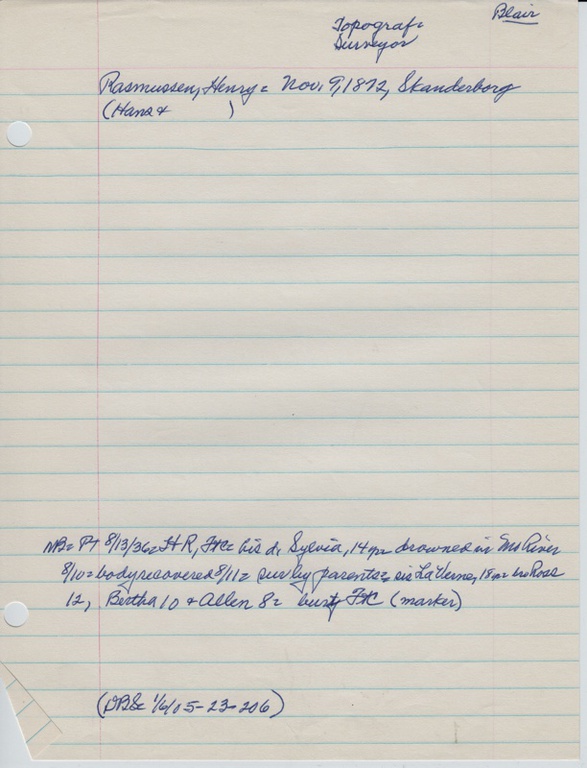 Blair
Topograf=
Surveyor
Rasmussen, Henry = Nov. 9, 1872, Skanderborg
(Hans &          )
8/13/36= HR, FtC= his d. Sylvia, 14 yr= drowned in Mo River
8/10= body recovered 8/11= sur by parents= sis LaVerne, 18 yr= bro Ross
12, Bertha 10 & Allen 8= FtC (marker)
1/6/05-23-206)